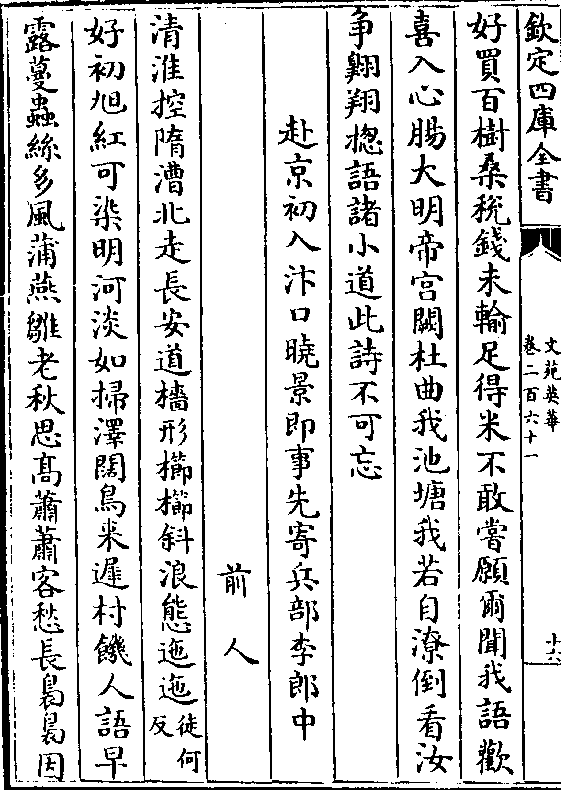 欽定四庫全書
文苑英華
卷二百六十一
十六
好買百樹桑稅錢未輸足得米不敢嘗願爾聞我語歡
喜入心腸大明帝宮闕杜曲我池塘我若自潦倒看汝
争翺翔揔語諸小道此詩不可忘
赴京初入汴口曉景即事先寄兵部李郎中
前人
清淮控隋漕北走長安道檣形櫛櫛斜浪態迤迤徒何反
好初旭紅可染明河淡如掃澤闊鳥来遲村饑人語早
露蔓蟲絲多風蒲燕雛老秋思髙蕭蕭客愁長裊裊因